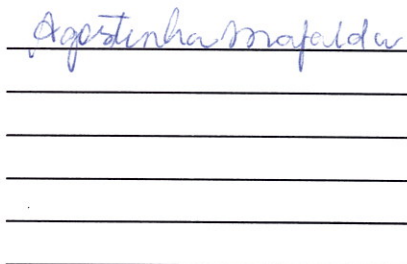 Agostinha Mafalda